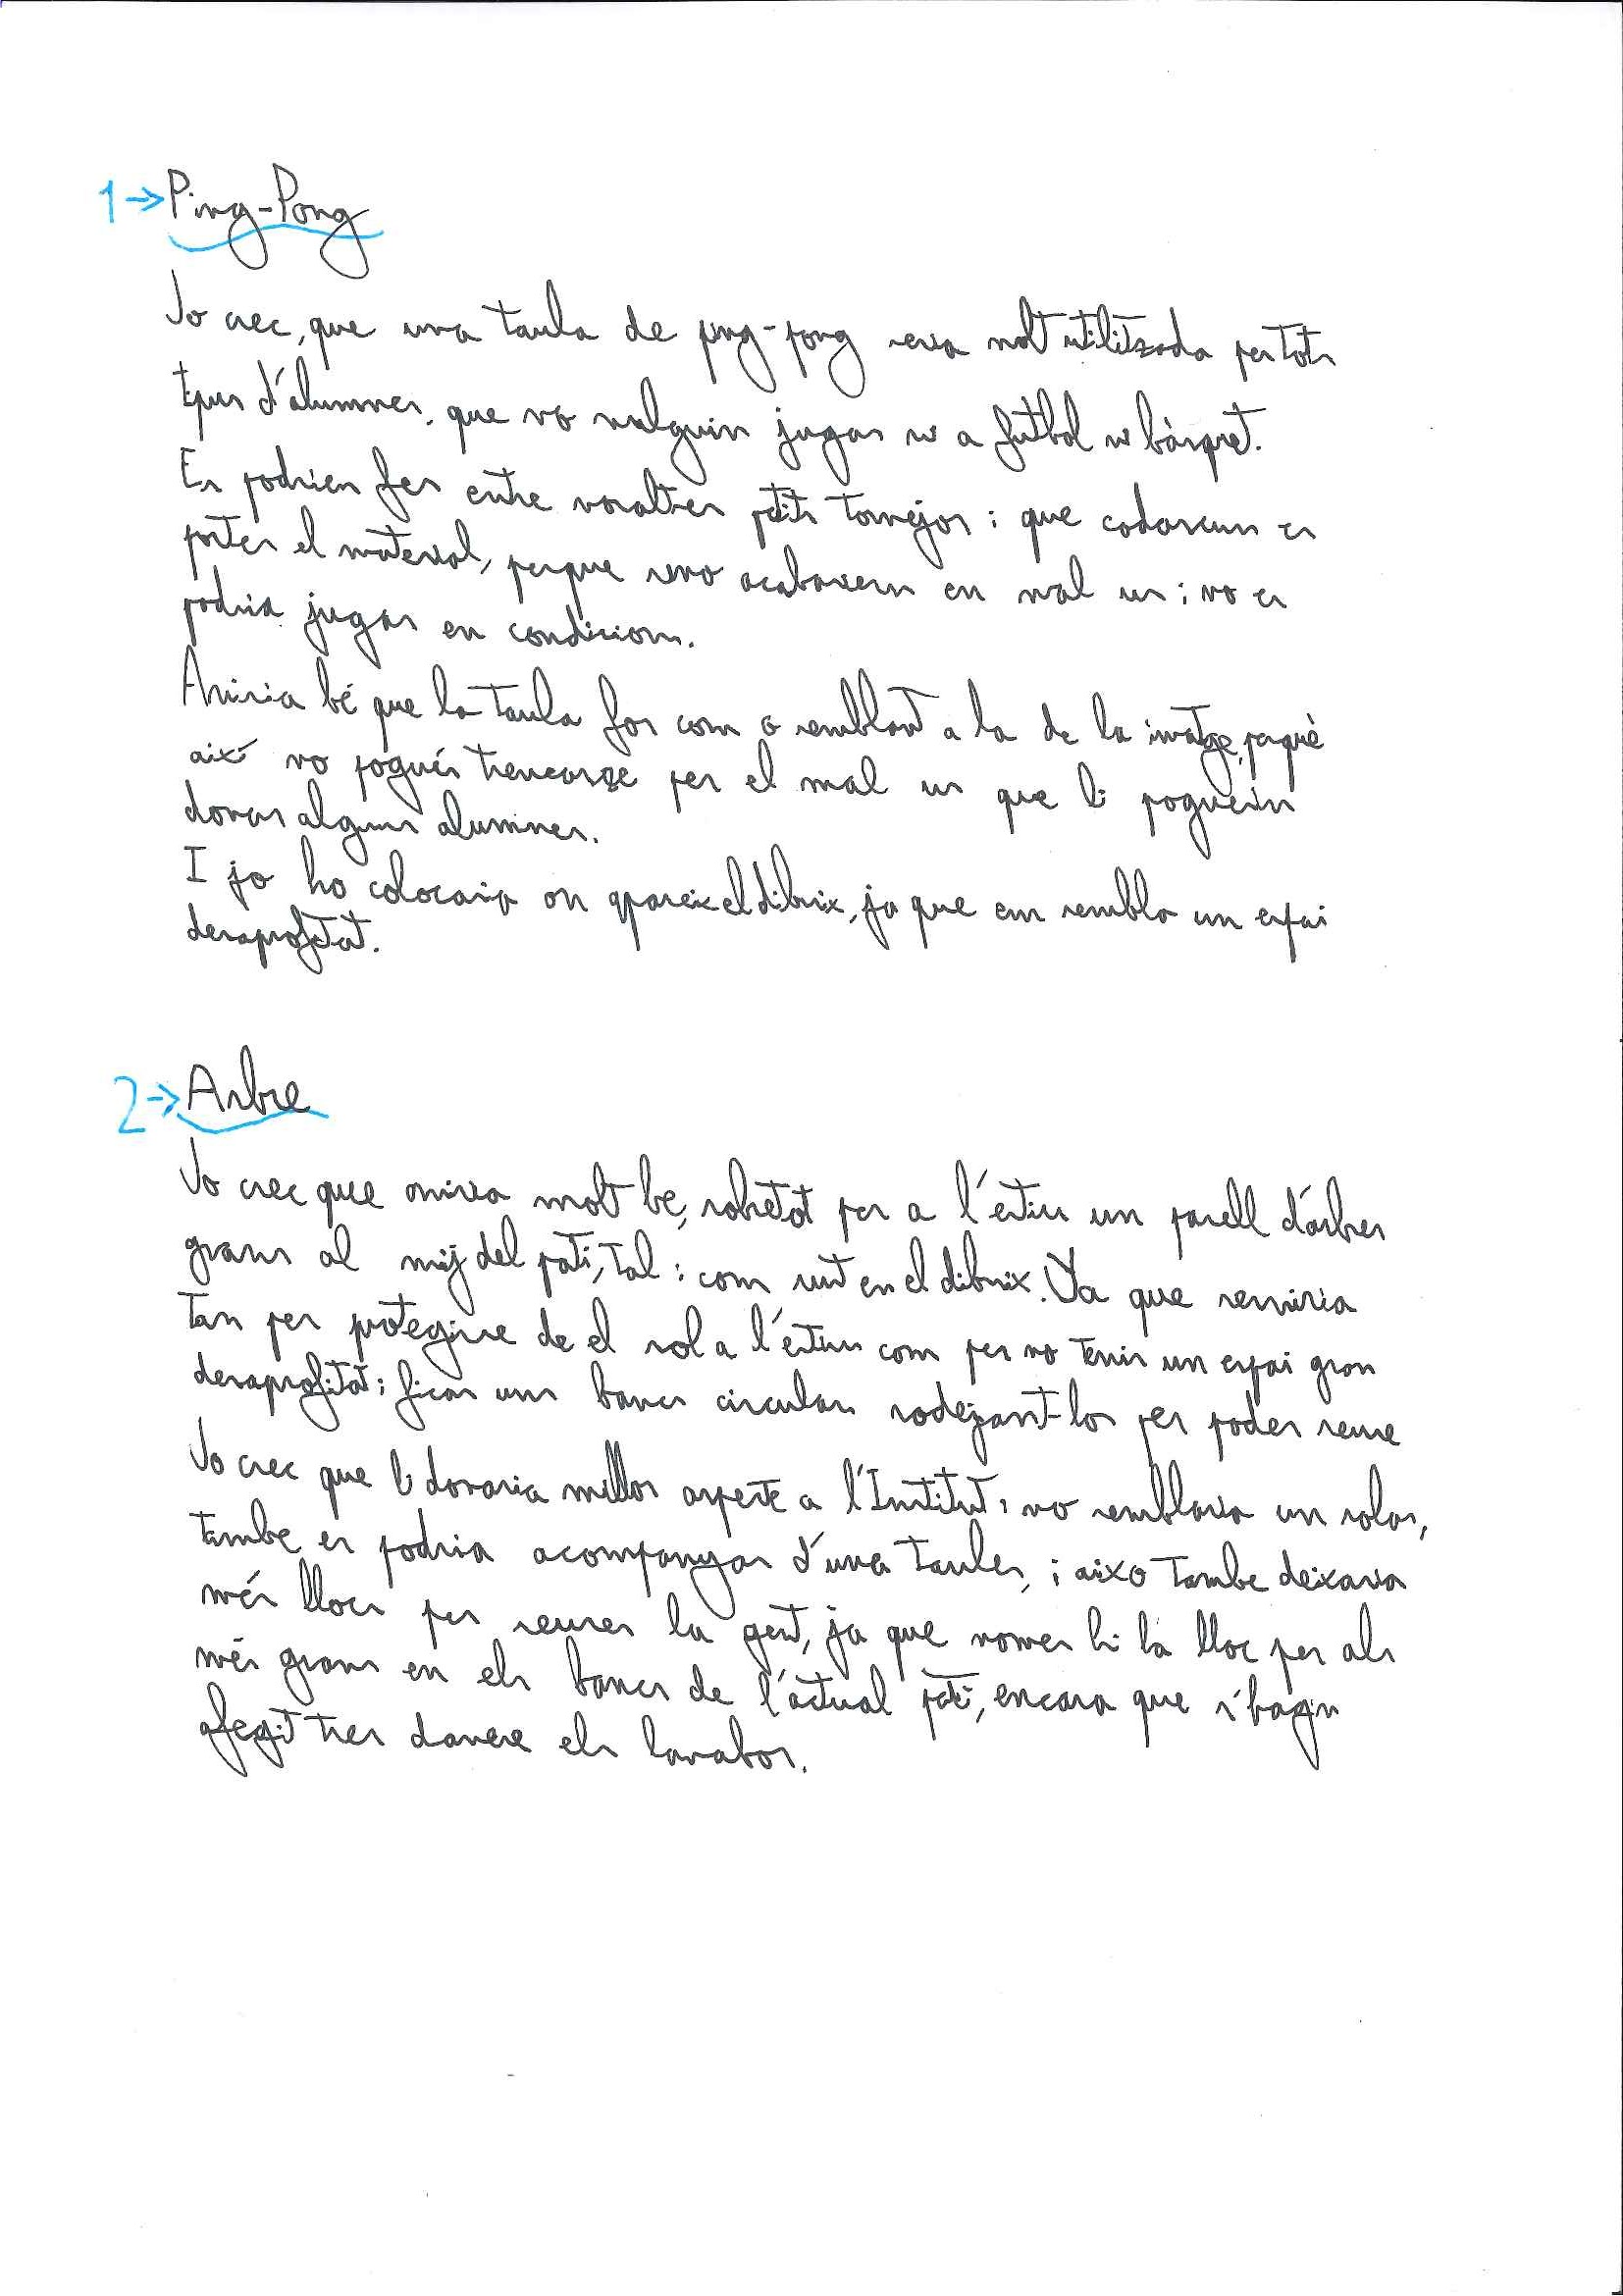 1→Ping-Pong
Jo crec, que una taula de ping-pong seria molt utilitzada per tots
tipus d'alumnes, que no vulguin jugar ni a futbol ni bàsquet.
Es podrien fer entre nosaltres petits tornejos i que cadascun es
portes el material, perque sino acabariem en mal us i no es
podria jugar en condicions.
Aniria bé que la taula fos com o semblant a la de la imatge, perquè
així no pogués trencarse per el mal us que li poguesin
donar alguns alumnes.
I jo ho colocaria on apareix el dibuix, ja que em sembla un espai
desaprofitat.
2→Arbre
Jo crec que aniria molt be, sobretot per a l'estiu un parell d'arbres
grans al mij del pati, tal i com surt en el dibuix. Ya que serviria
tan per protegirse de el sol a l'estiu com per no tenir un espai gran
desaprofitat i ficar uns bancs circulars rodejant-los per poder seure
Jo crec que li donaria millor aspecte a l'Institut i no semblaria un solar,
tambe es podria acompanyar d'unes taules, i aixo tambe deixaria
més llocs per seures la gent, ja que nomes hi ha lloc per als
més grans en els bancs de l'actual pati, encara que s'hagin
afegit tres darrere els lavabos.